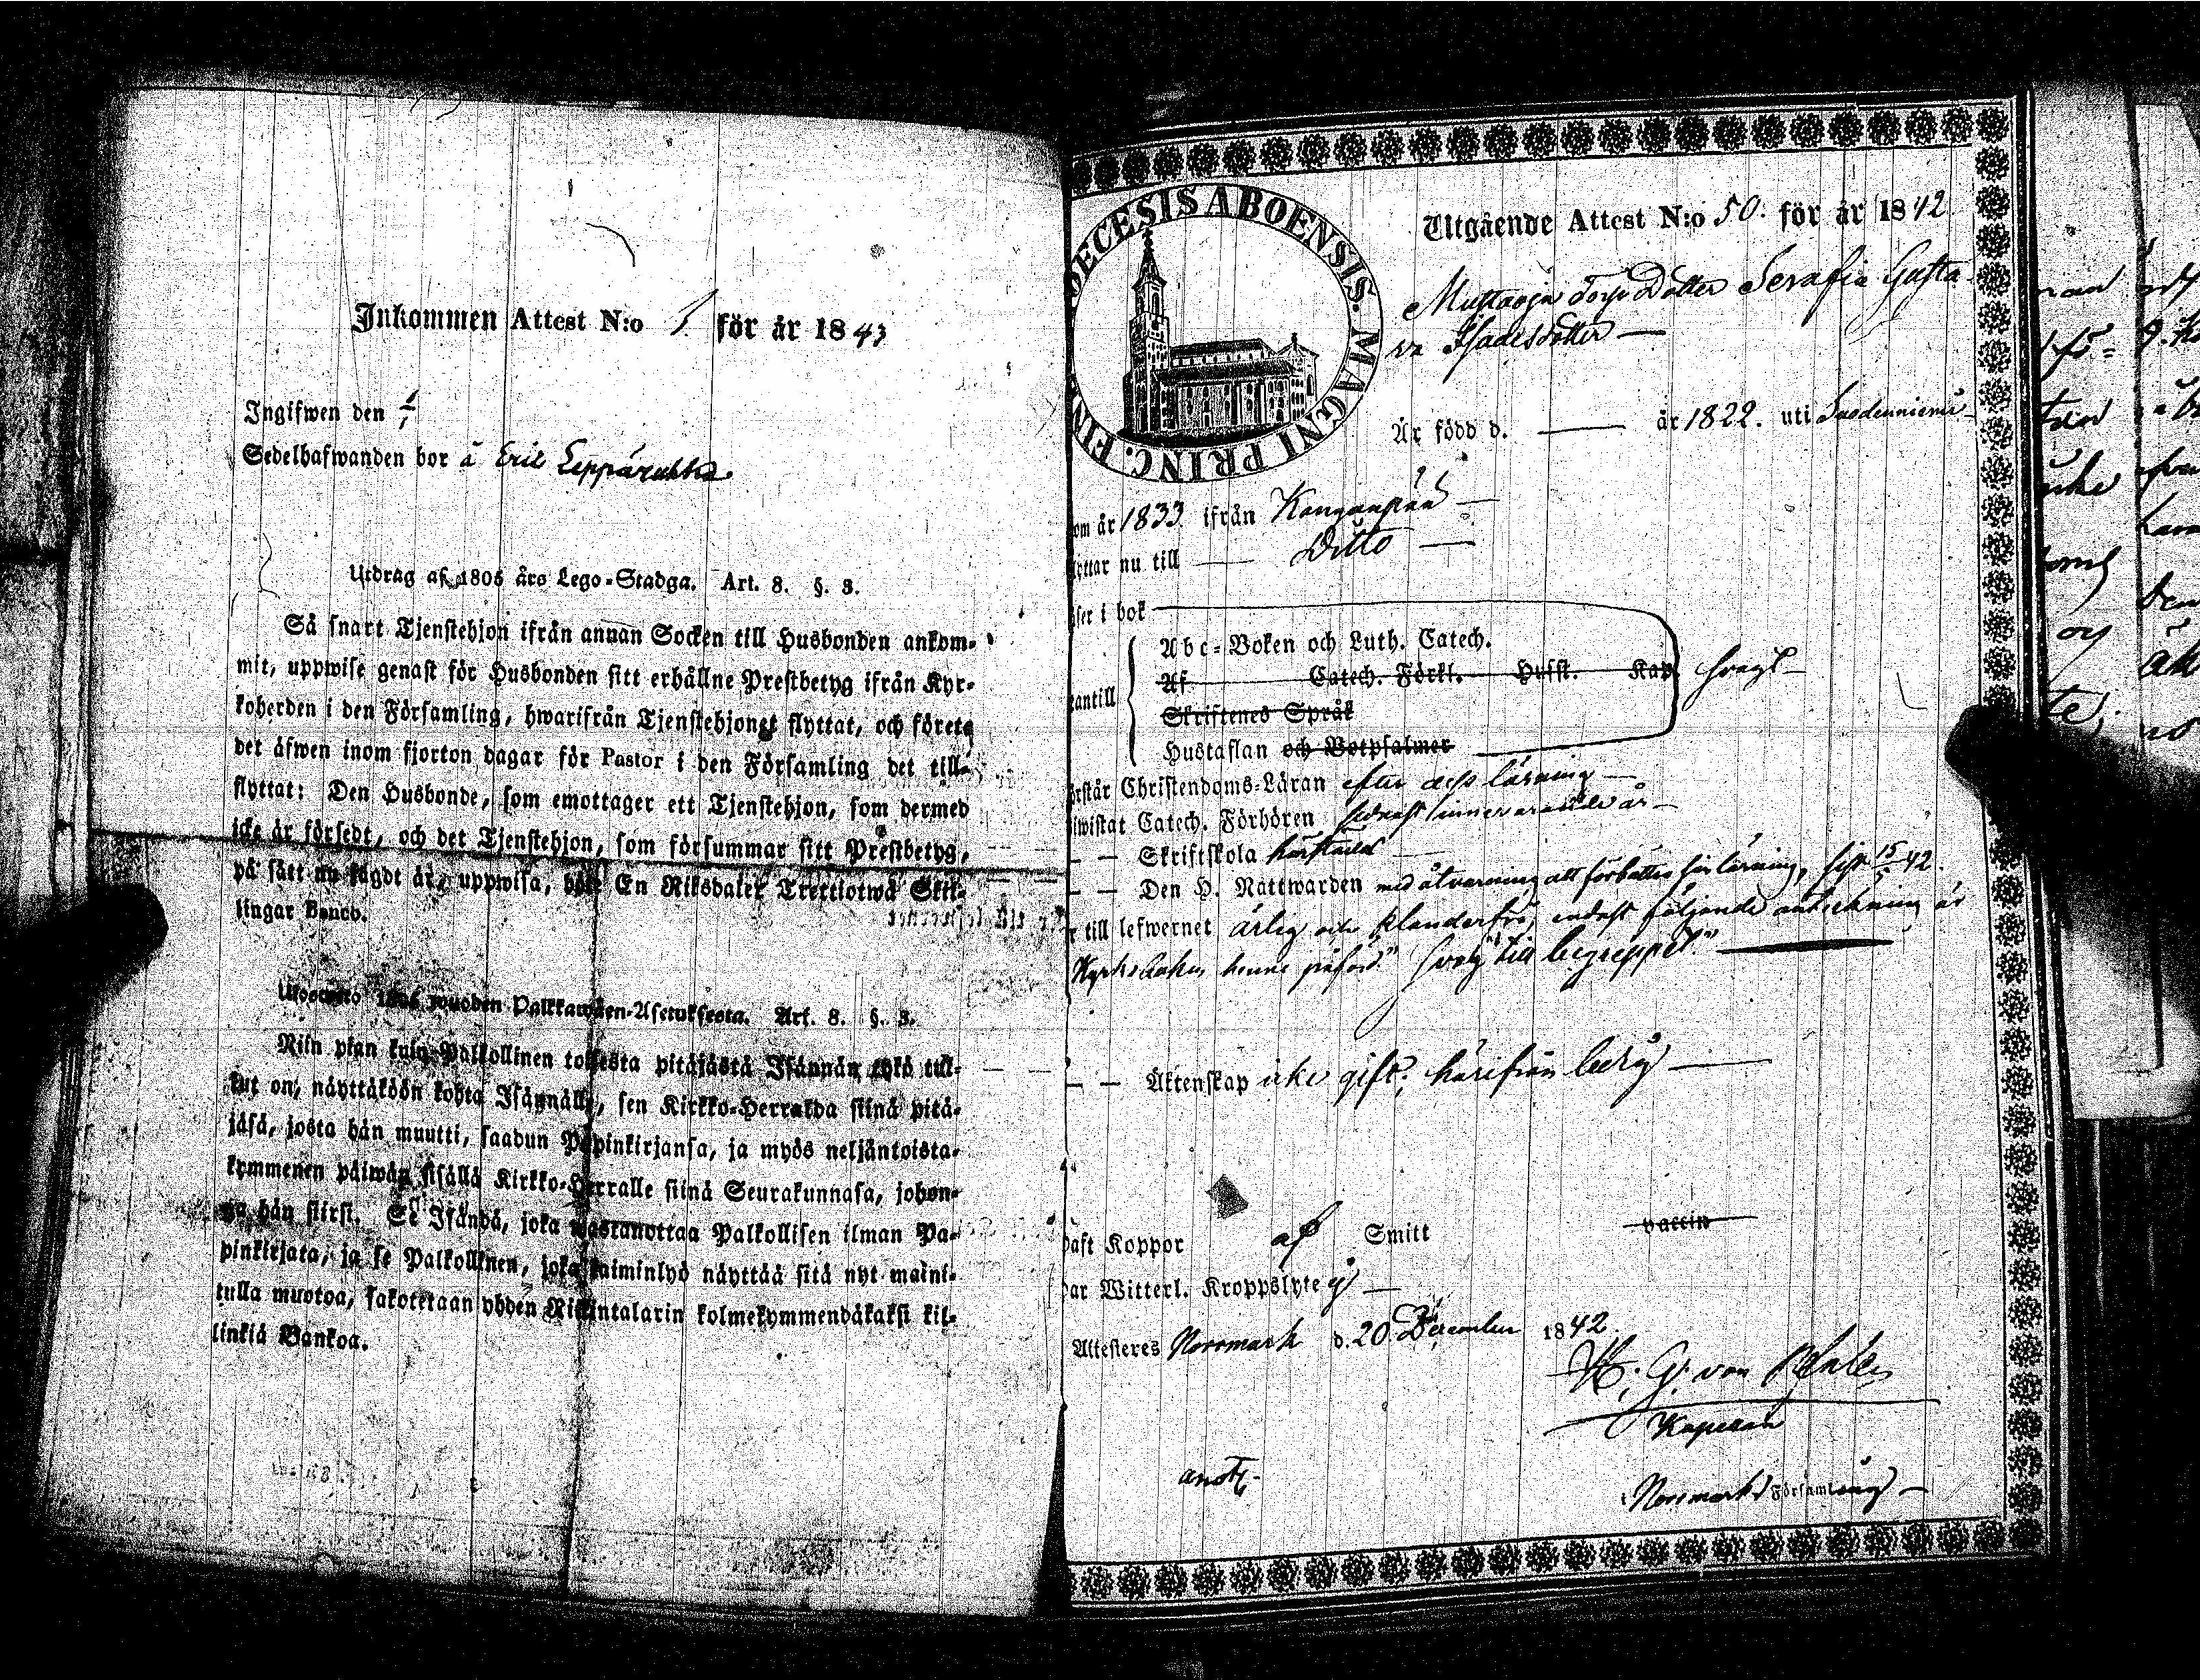 Inkommen Attest N:o 1. för år 1843
Ingifwen den
Sedelhafwanden bor å Eric Leppäruhka
Utdrag af 1805 års Lego-Stadga. Art. 8. §. 3.
Så snart Tjenstehjon ifrån annan Socken till Husbonden ankom-
mit, uppwise genast för Husbonden sitt erhållne Prestbetyg ifrån Kyr-
koherden i den Församling, hwarifrån Tjenstehjonet flyttat, och förete
det äfwen inom fjorton dagar för Pastor i den Församling det till-
flyttat: Den Husbonde, som emottager ett Tjenstehjon, som dermed
icke är försedt, och det Tjenstehjon, som försummar sitt Prestbetyg,
på sätt nu sagdt är, uppwisa, böte En Riksdaler Trettiotwå Skil-
lingar Banco.
Ulosotetto 1805 wuoden Palkkawäen-Asetuksesta. Art. 8. §. 3.
Niin pian kuin Palkollinen toisesta pitäjästä Isännän tykö tul-
lut on, näyttäköön kohta Isännälle, sen Kirkko-Herralda siinä pitä-
jäsä, josta hän muutti, saadun Papinkirjansa, ja myös neljäntoista-
kymmenen päiwän sisällä Kirkko-Herralle siinä Seurakunnasa, johon-
ga hän siirsi. Se Isändä, joka wastanottaa Palkollisen ilman Pa-
pinkirjata, ja se Palkollinen, joka laiminlyö näyttää sitä nyt maini-
tulla muotoa, sakotetaan yhden Riikintalarin kolmekymmendäkaksi kil-
linkiä Bankoa.
DECESIS ABOENSIS. MAGNI PRINC. FIN
Utgående Attest N:o 50. för år 1842
Muttaoja Torp Dotter Serafia Gusta-
va Isacsdotter
Är född d. — år 1822. uti Suodenniemi
om år 1833 ifrån Kanganpää
lyttar nu till — Ditto —
äser i bok
Abc-Boken och Luth. Catech.
Af Catech. Förkl. Hufst. Kap. svagt
antill Skriftenes Språk
Hustaflan och Botpsalmer
örstår Christendoms-Läran efter dess lärning
iwistat Catech. Förhören sednast innevarande år
— — Skriftskola
— — Den H. Nattwarden med åtvarning att förbättra sin läsning, sist 15 42.
till lefwernet ärlig och klanderfri, endast följande anteckning är
Kyrkoboken henne påförd: "svag till begreppet."
— — Äktenskap icke gift; härifrån ledig
haft Koppor af Smitt vaccin
Har Witterl. Kroppslyte ej
Attesteres Norrmark d. 20 December 1842.
Kapellan
Norrmarks Församling